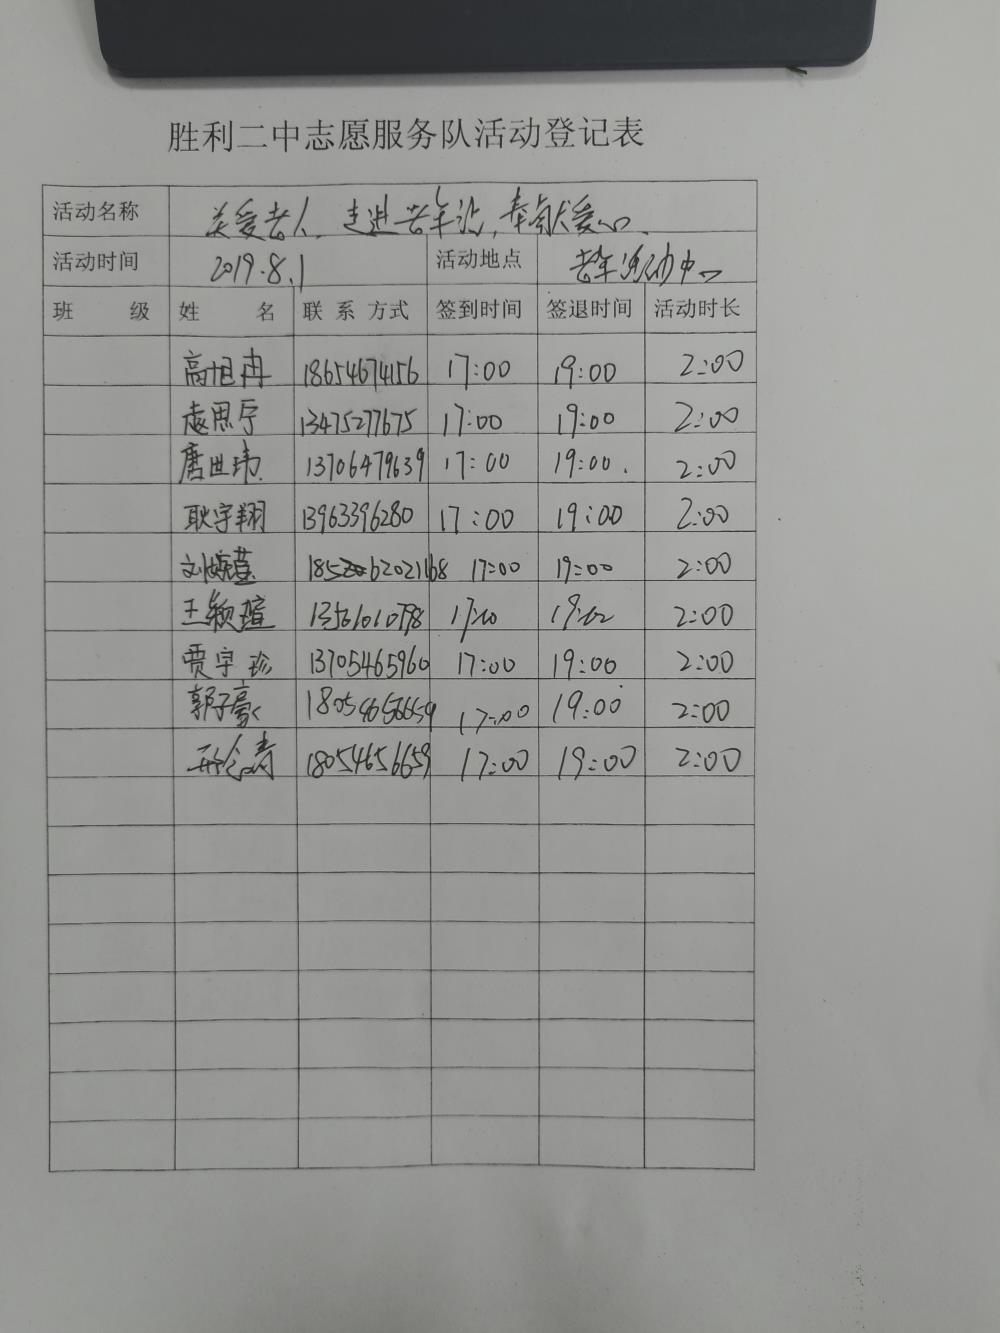 胜利二中志愿服务队活动登记表
活动名称 关爱老人,走进老年公,奉献爱心.
活动时间 2019.8.1 活动地点 老年活动中心
班 级 姓 名 联 系 方式 签到时间 签退时间 活动时长
高旭冉 18654674156 17:00 19:00 2:00
赵思宁 13475277675 17:00 19:00 2:00
唐世玮 13706479639 17:00 19:00. 2:00
耿宇翔 13963396280 17:00 19:00 2:00
17:00 19:00 2:00
王颖瑄 13561010798 2:00
贾宇珍 13705465960 17:00 19:00 2:00
郭子豪 17:00 19:00 2:00
18054656659 17:00 19:00 2:00